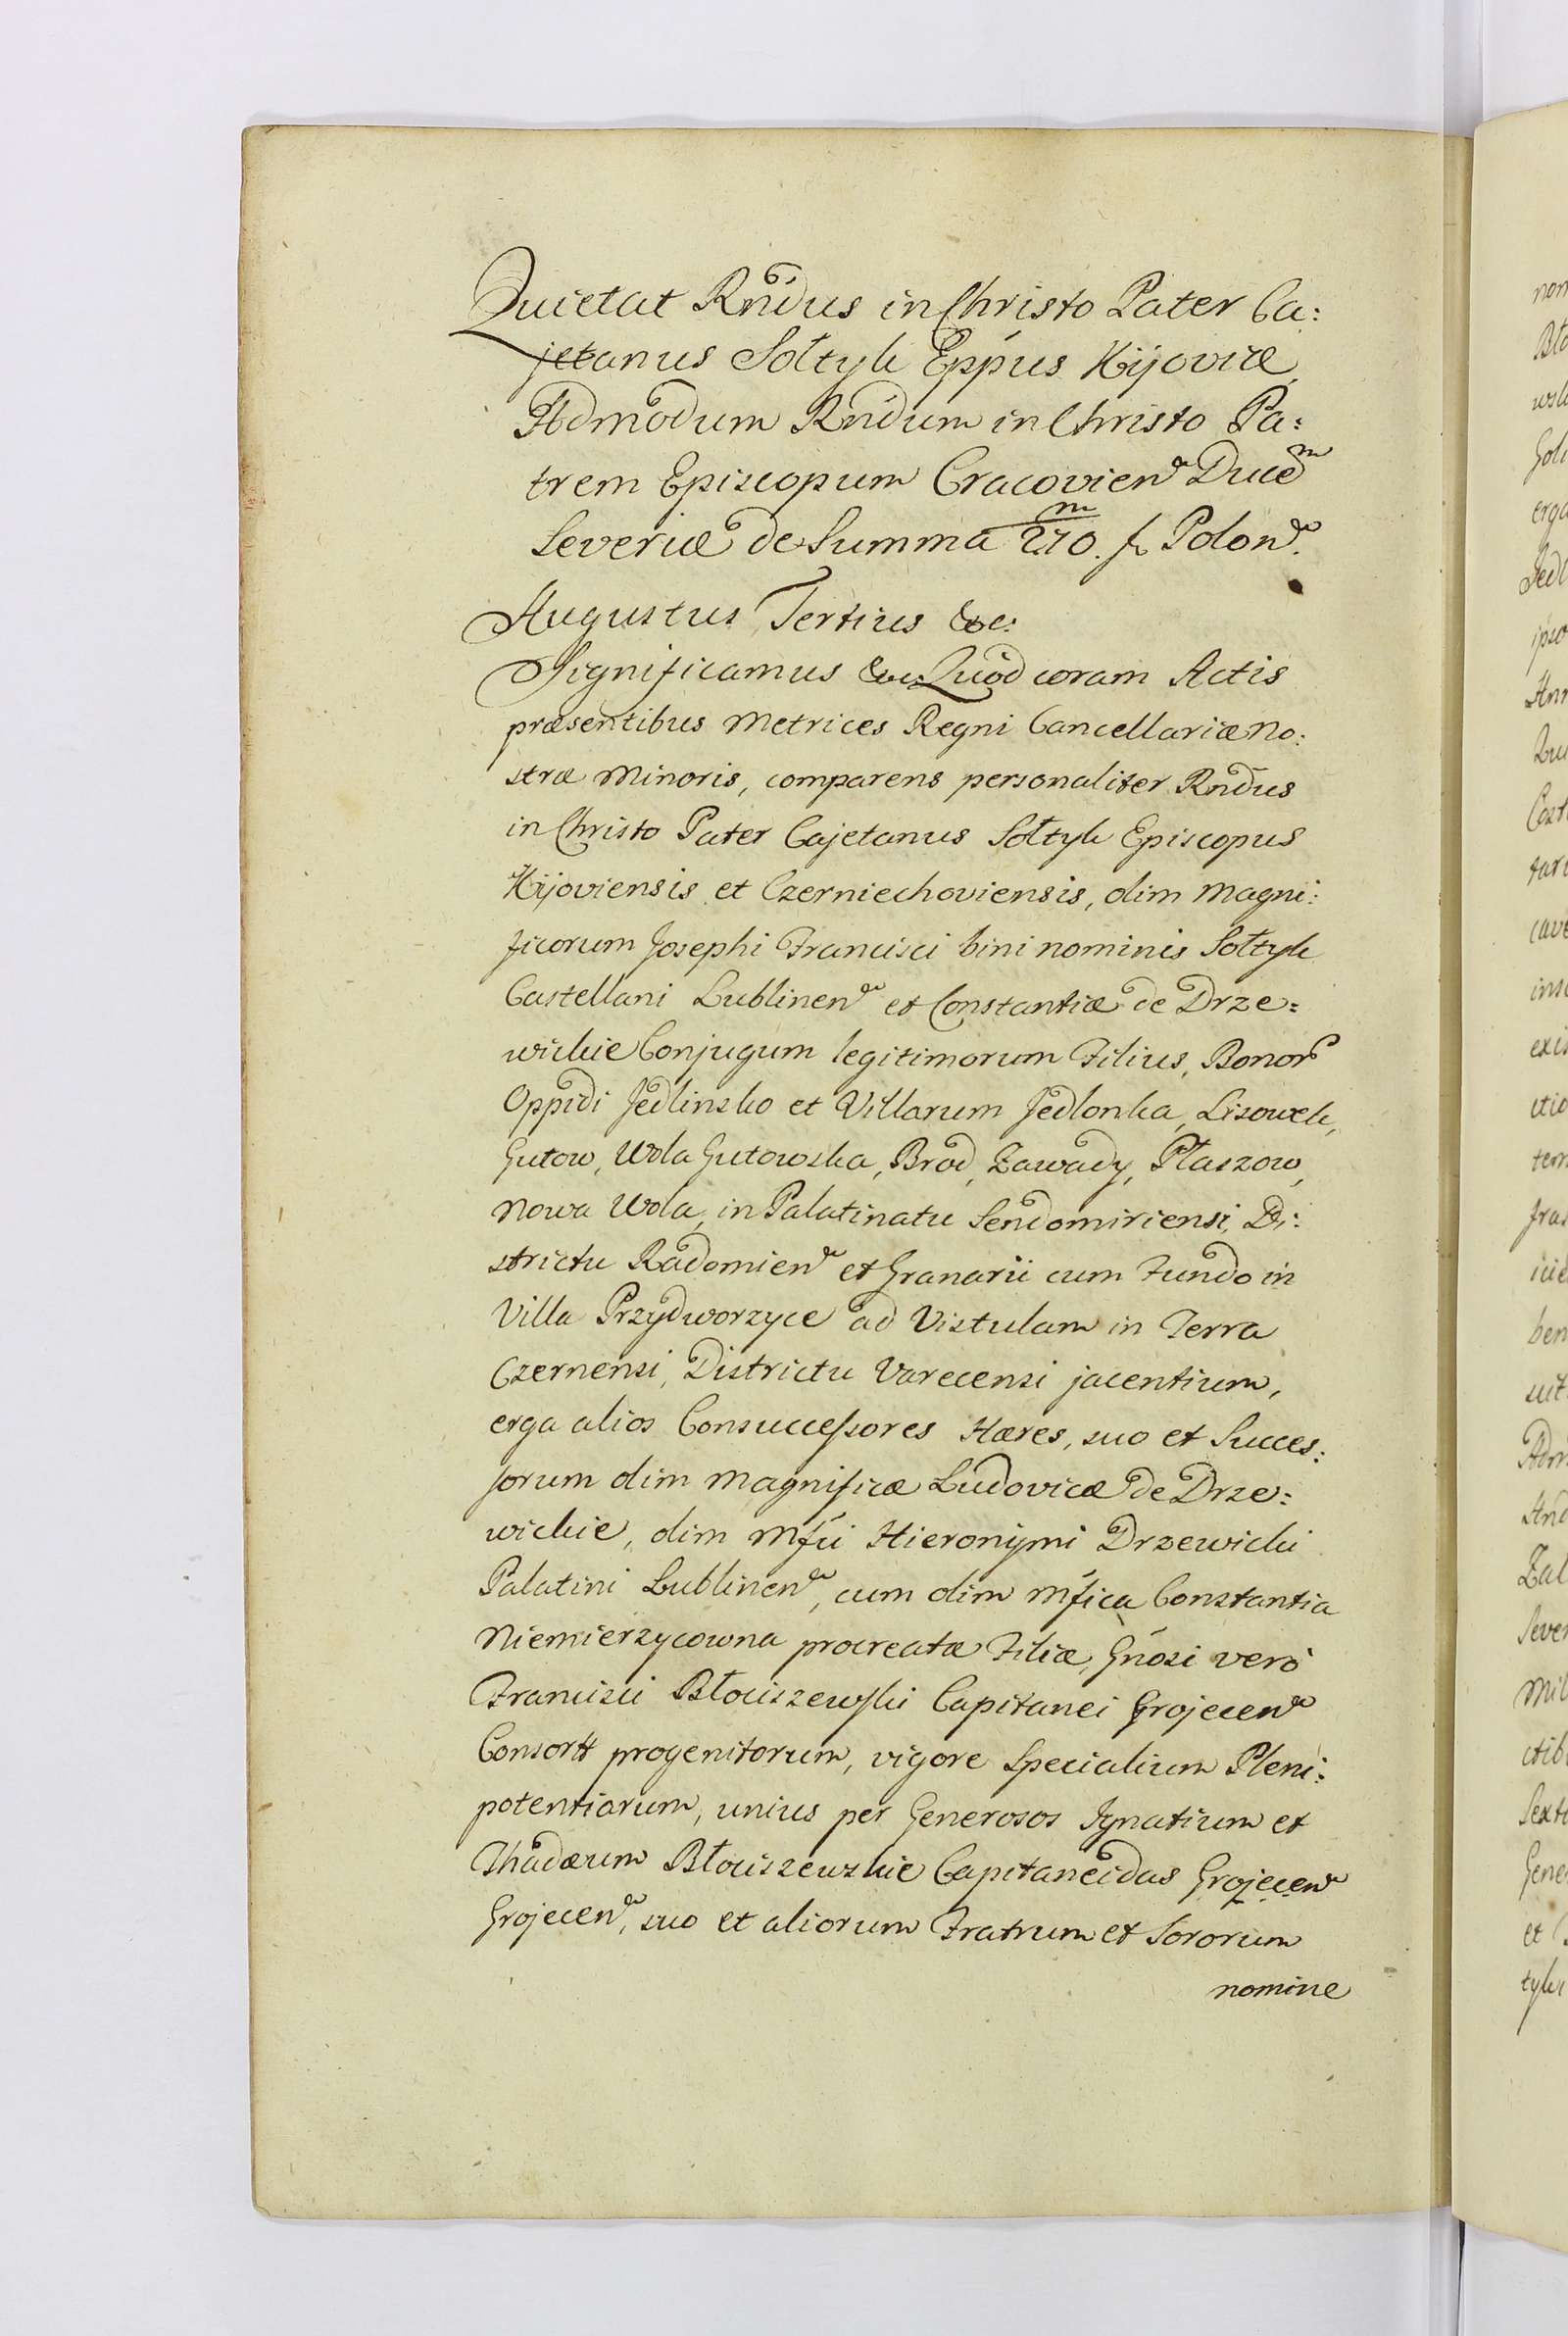 Quietat Rndus in Christo Pater Ca:
jetanus Sołtyk Eppus Kijoviæ
Admodum Rndum in Christo Pa:
trem Episcopum Cracovien Ducem
Severiæ de Summa 270 m. f. Polon.
Augustus Tertius &c:
Significamus &c: Quod coram Actis
præsentibus Metrices Regni Cancellariæ No:
stræ Minoris, comparens personaliter Rndus
in Christo Pater Cajetanus Sołtyk Episcopus
Kijoviensis et Czerniechoviensis, olim Magni:
ficorum Josephi Francisci bini nominis Sołtyk
Castellani Lublinen et Constantiæ de Drze=
wickie Conjugum legitimorum Filius, Bonor
Oppidi Jedlinsko et Villarum Jedlonka, Lisowek,
Gutow, Wola Gutowska, Brod, Zawady, Płaszow,
Nowa Wola, in Palatinatu Sendomiriensi Di:
strictu Radomien et Granarii cum Fundo in
Villa Przydworzyce ad Vistulam in Terra
Czernensi, Districtu Varecensi jacentium,
erga alios Consuccessores Hæres, suo et Succes:
sorum olim Magnificæ Ludovicæ de Drze:
wickie, olim Mfci Hieronymi Drzewicki
Palatini Lublinen, cum olim Mfica Constantia
Niemierzycowna procreatæ Filiæ, Gnosi vero
Francisci Błociszewski Capitanei Grojecen
Consortt progenitorum, vigore Specialium Pleni:
potentiarum, unius per Generosos Ignatium et
Thadæum Błociszewskie Capitaneidas Grojecen
Grojecen, suo et aliorum Fratrum et Sororum
nomine